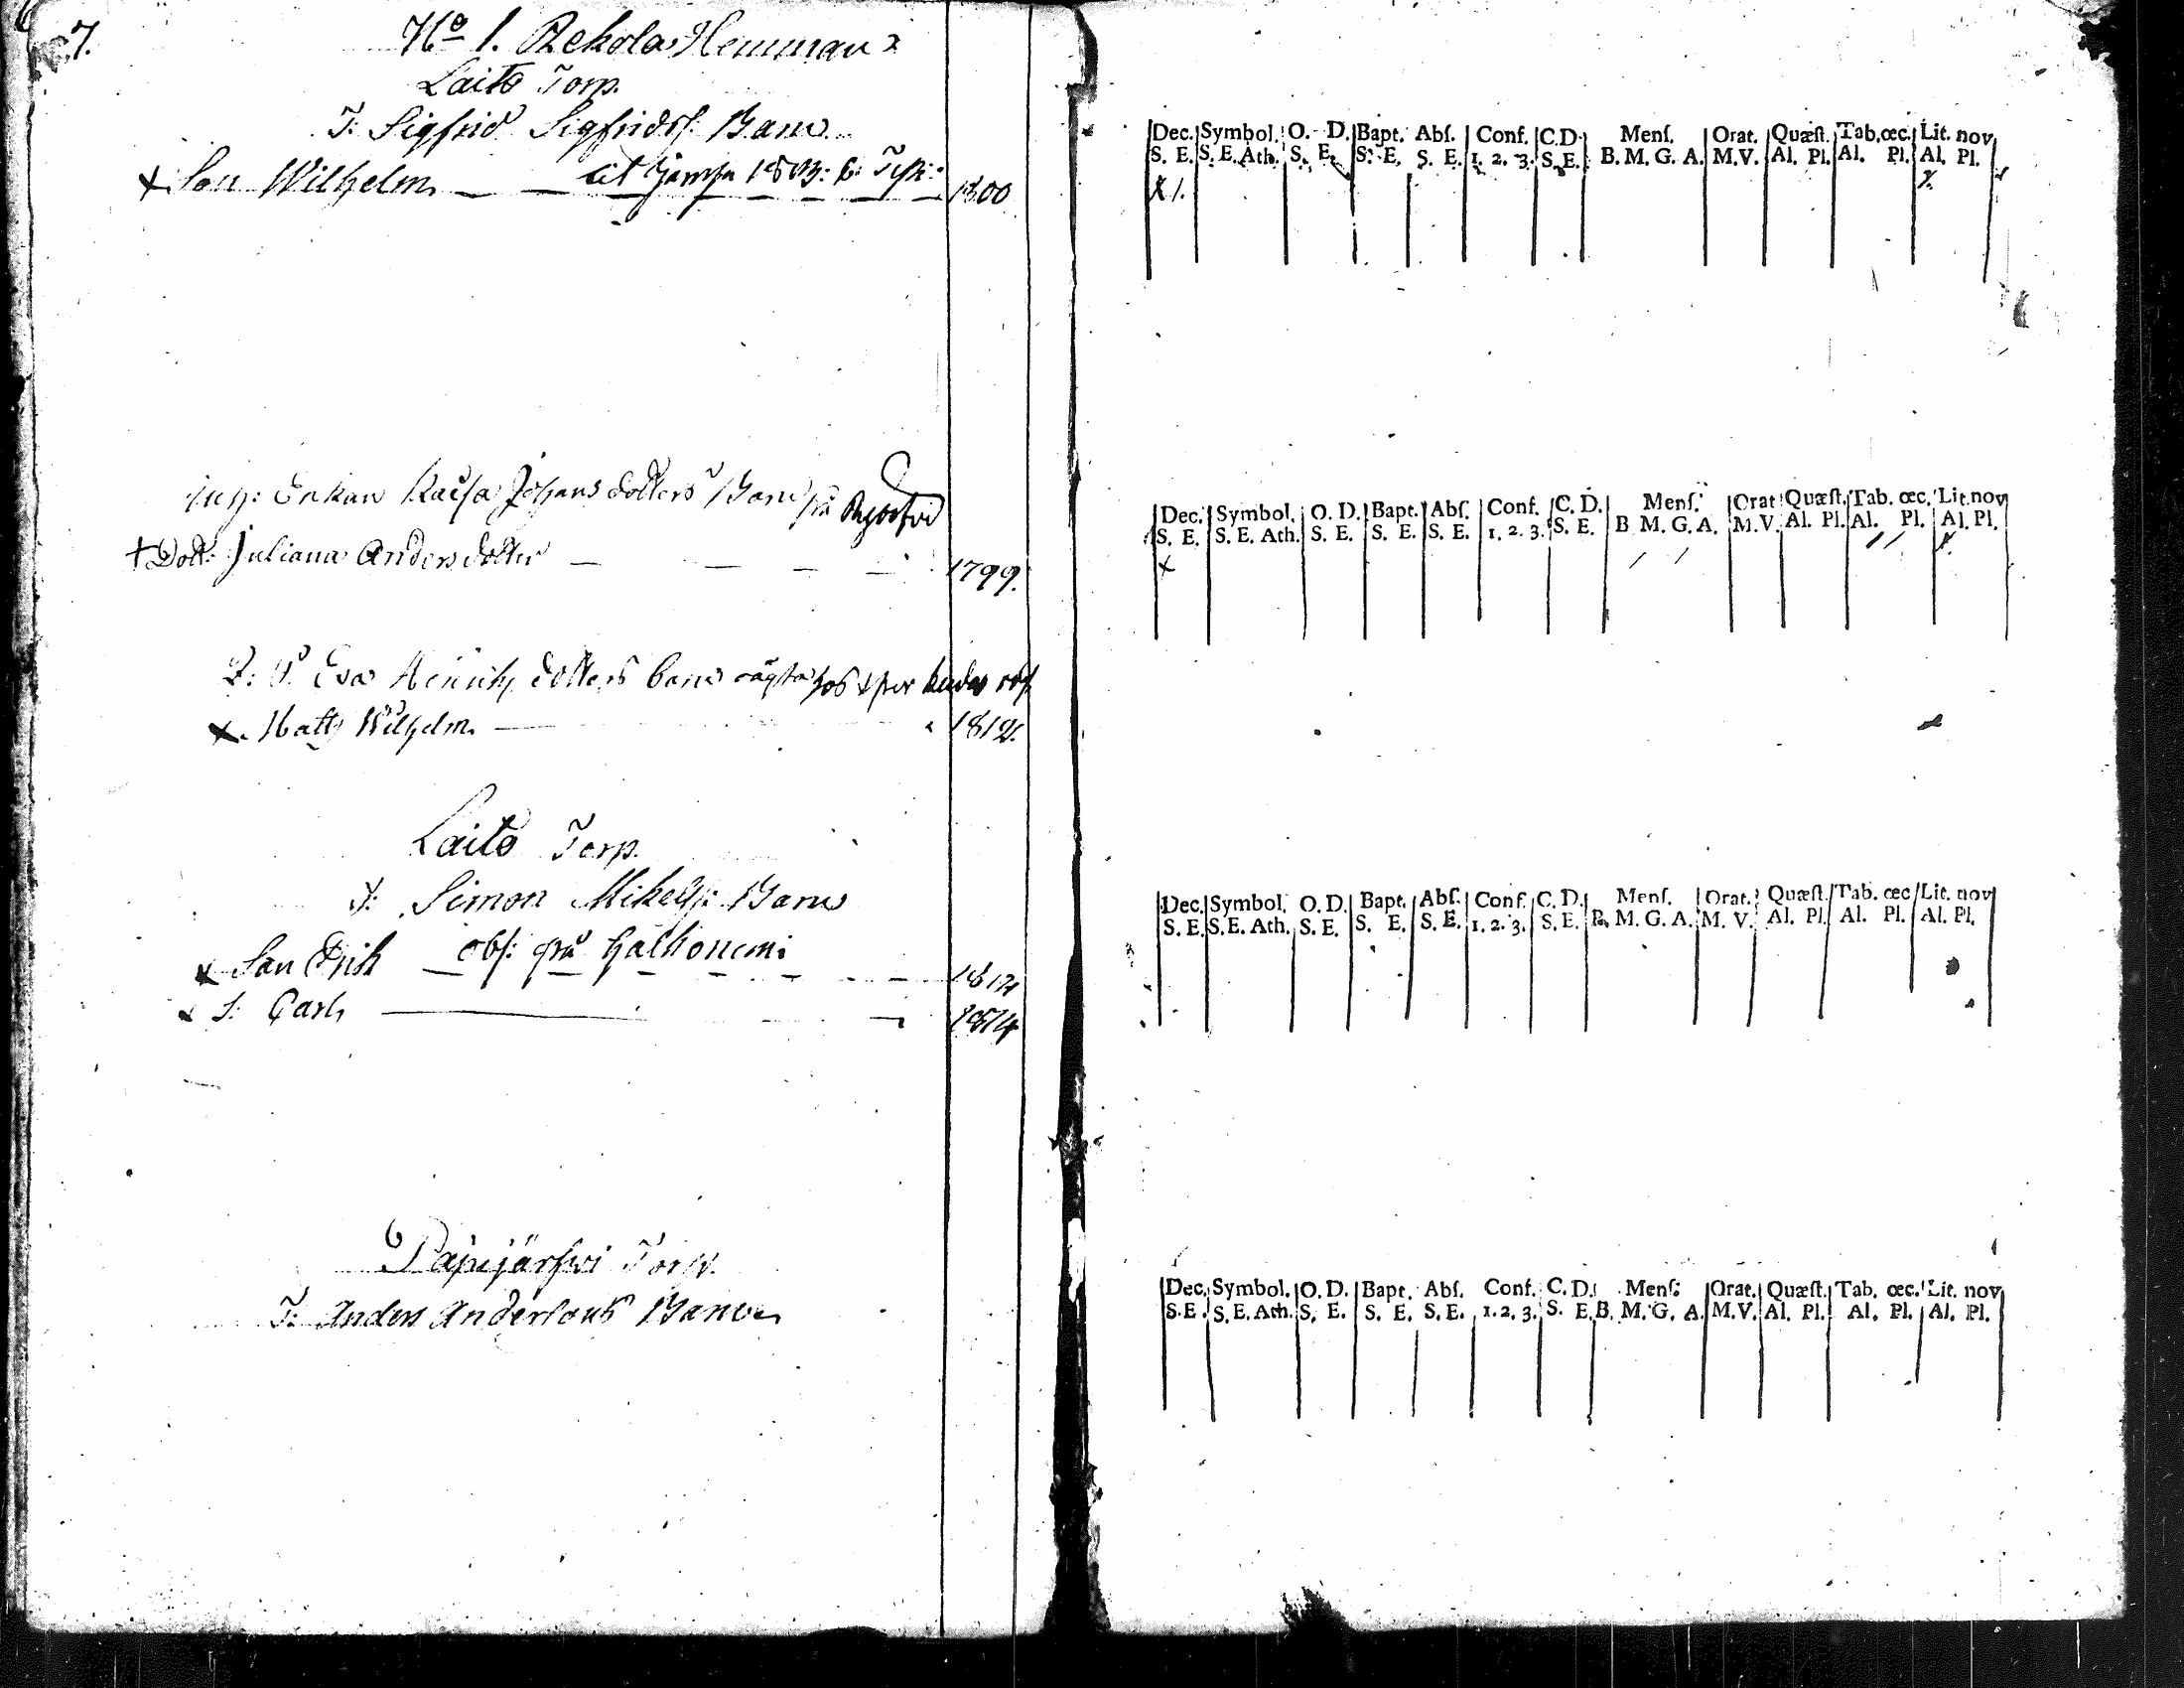 7.
No 1. Rekola Hemman
Laito Torp.
T: Sigfrid Sigfrids. Barn
Son Wilhelm 1800
Enkan Kaisa Johans dotters Barn
+ Dott: Juliana Anders dotter 1799.
Eva Henrichs dotters barn hos
Matts Wilhelm 1812.
Laito Torp.
T: Simon Mikels: Barn
obs: på
Son Erik
S: Carl 1814
Papijärfwi Torp.
T: Anders Andersons Barn
Dec. Symbol. O. D. Bapt. Abſ. Conf. C.D. Menſ. Orat. Quæſt. Tab. œc. Lit. nov
S. E. S. E. Ath. S. E. S. E. S. E. 1. 2. 3. S. E. B. M. G. A. M.V. Al. Pl. Al. Pl. Al. Pl.
Dec. Symbol. O. D. Bapt. Abſ. Conf. C. D. Menſ. Orat Quæſt. Tab. œc. Lit. nov
S. E. S. E. Ath. S. E. S. E. S. E. 1. 2. 3. S. E. B M. G. A. M.V. Al. Pl. Al. Pl. Al. Pl.
Dec. Symbol. O. D. Bapt. Abſ. Conf. C. D. Menſ. Orat. Quæſt. Tab. œc. Lit. nov
S. E. S. E. Ath. S. E. S. E. S. E. 1. 2. 3. S. E. B. M. G. A. M. V. Al. Pl. Al. Pl. Al. Pl.
Dec. Symbol. O. D. Bapt. Abſ. Conf. C. D. Menſ. Orat. Quæſt. Tab. œc. Lit. nov
S. E. S. E. Ath. S. E. S. E. S. E. 1. 2. 3. S. E. B. M. G. A. M.V. Al. Pl. Al. Pl. Al. Pl.